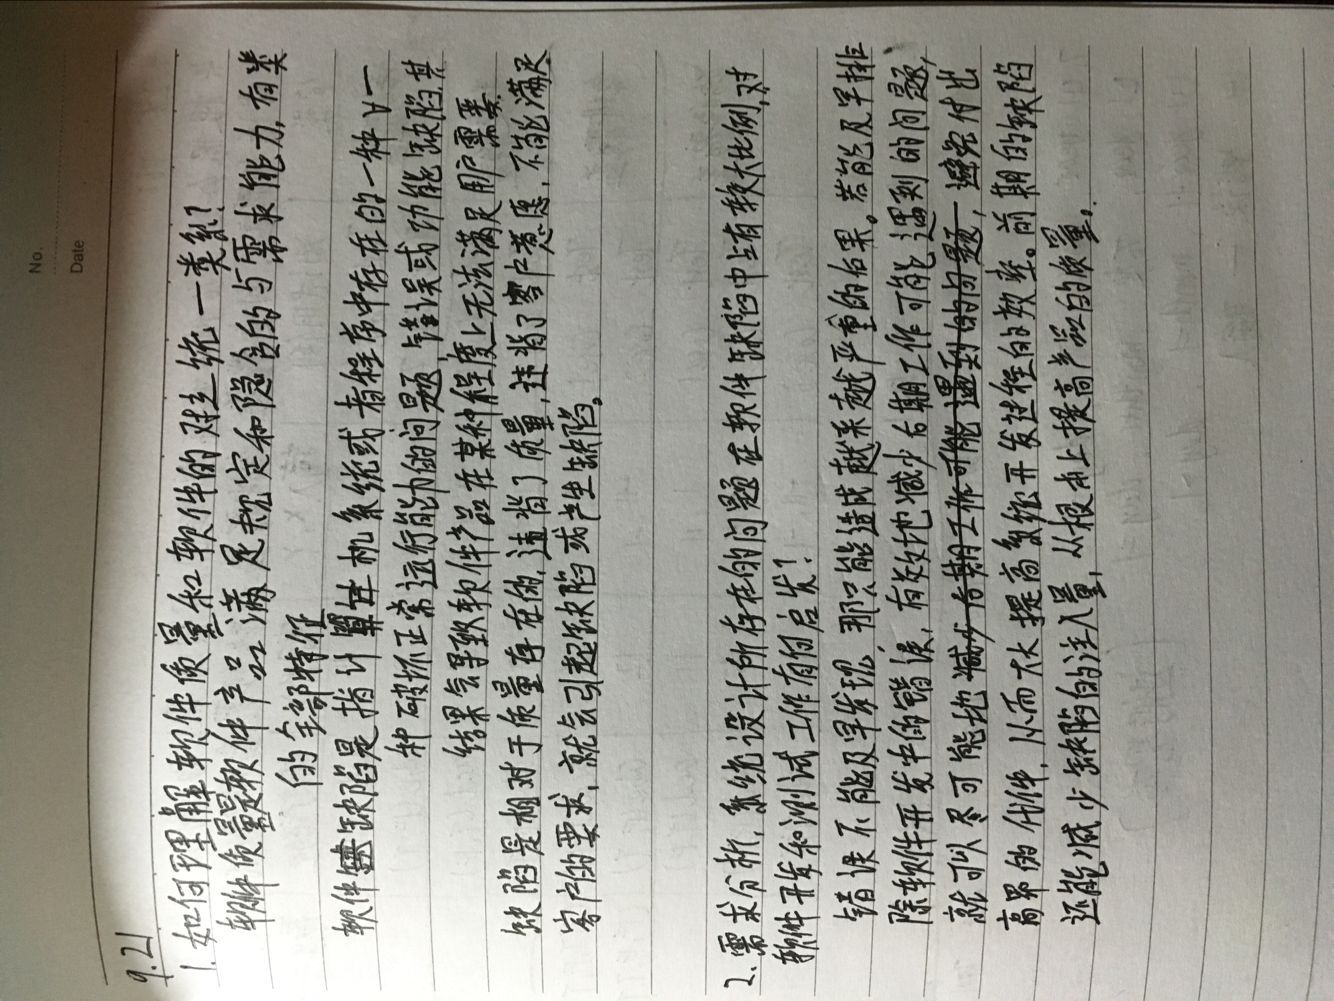 No.
Date
9.21
1. 如何理解软件质量和软件的对立统一关系?
软件质量是软件产品满足规定和隐含的与需求能力有关
的全部特征
软件缺陷是指计算机系统或者程序中存在的一种
种破坏正常运行能力的问题、错误或功能缺陷,其
结果会导致软件产品在某种程度上无法满足用户需要
缺陷是相对于质量存在的,违背了质量,违背了客户意愿,不能满足
客户的要求,就会引起缺陷或产生缺陷。
2. 需求分析,系统设计所存在的问题在软件缺陷中占有较大比例,对
软件开发和测试工作有何启发?
错误不能及早发现,那只能造成越来越严重的后果。若能及早排
除软件开发中的错误,有效地减少后期工作可能遇到的问题,
就可以尽可能地减少后期工作可能遇到的问题,避免付出
高昂的代价,从而大大提高系统开发过程的效率。前期的缺陷
还能减少缺陷的注入量,从根本上提高产品的质量。